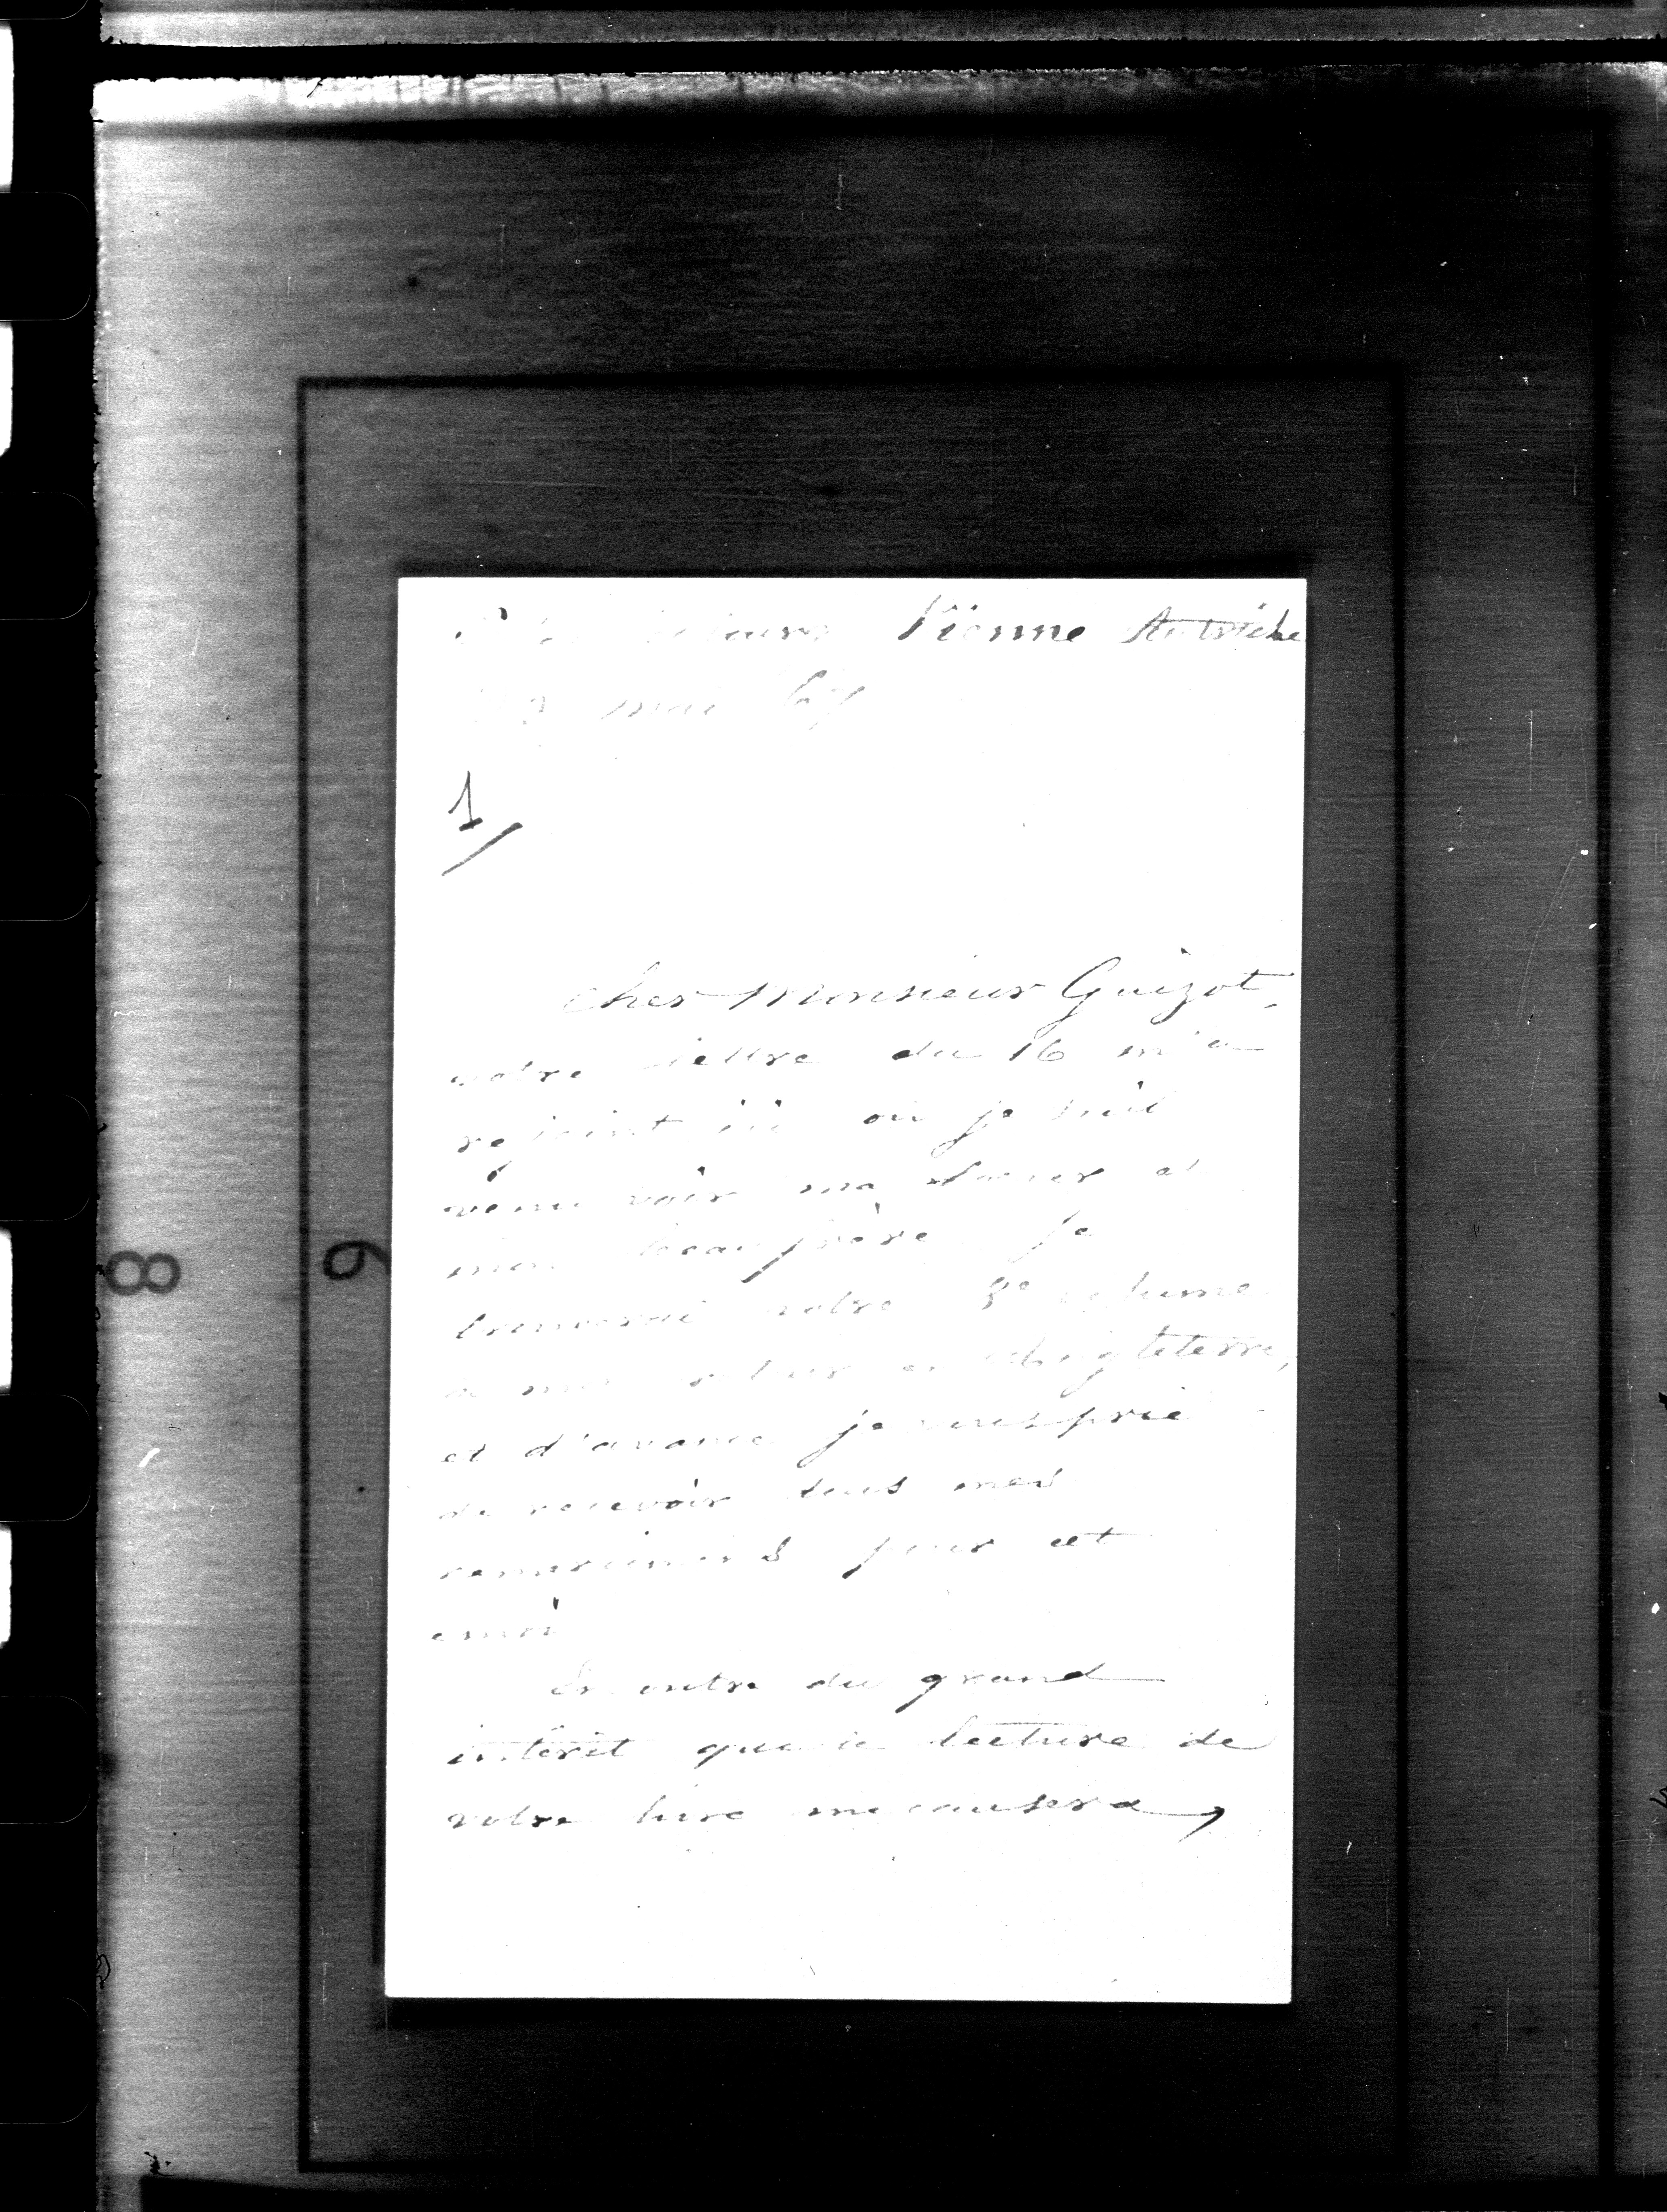 Vienne Autriche
mai 67
1/
Cher Monsieur Guizot,
votre lettre du 16 m'a
rejoint ici où je suis
venu voir ma soeur et
mon beaufrère. Je
trouverai votre 8e volume
à mon retour en Angleterre,
et d'avance je vous prie
de recevoir tous mes
remerciments pour cet
envoi
En outre du grand
intérêt que la lecture de
votre livre me causera,
8
6